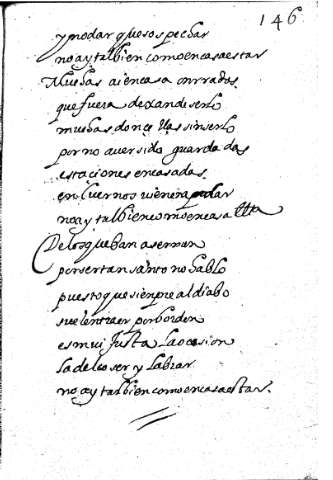 146
y no dar que sospechar
no ay tal bien como en casa estar
Muchas a i en casa onrradas
que fuera dexan de serlo
muchas donçellas sin serlo
por no auer sido guardadas
estaciones en casadas
en cuernos uienen a parar
no ay tal bien como en casa estar
De los que ban a sermon
por ser tan santo no hablo
puesto que siempre al diablo
suelen traer por bordon
es mui justa la ocasion
la de coser y labrar
no ay tal bien como en casa estar.